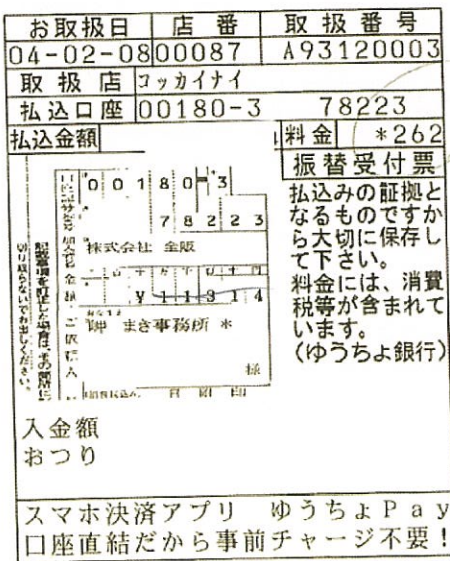 お取扱日 店番 取扱番号
04-02-08 00087 A93120003
取扱店 コッカイナイ
払込口座 00180-3 78223
払込金額 料金 *262
振替受付票
払込みの証拠と
なるものですか
ら大切に保存し
て下さい。
料金には、消費
税等が含まれて
います。
(ゆうちょ銀行)
00180-3
78223
株式会社 金阪
¥11314
まき事務所 *
様
切り取らないでお出しください。
入金額
おつり
スマホ決済アプリ ゆうちょPay
口座直結だから事前チャージ不要!